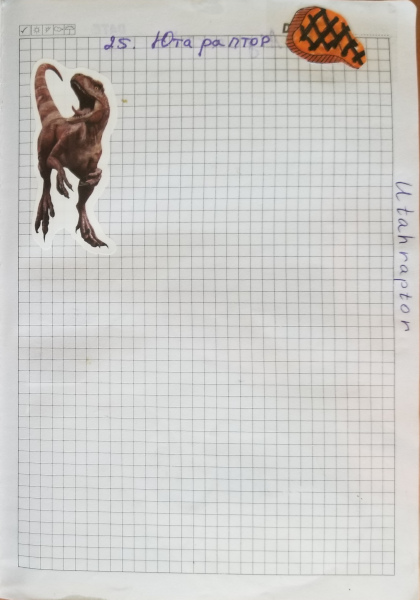 25. Ютараптор
Utahraptor